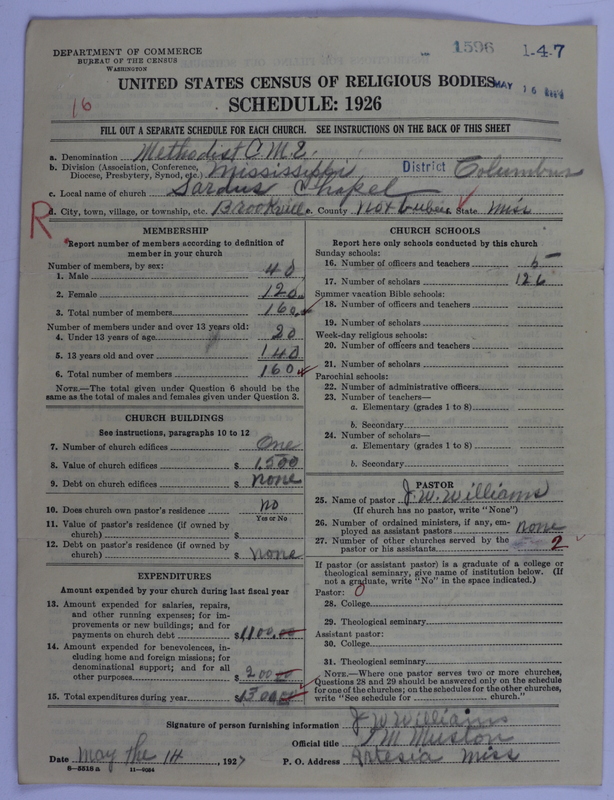 DEPARTMENT OF COMMERCE
BUREAU OF THE CENSUS
WASHINGTON
1596
1-4-7
UNITED STATES CENSUS OF RELIGIOUS BODIES
MAY 16
16
SCHEDULE: 1926
FILL OUT A SEPARATE SCHEDULE FOR EACH CHURCH. SEE INSTRUCTIONS ON THE BACK OF THIS SHEET
a. Denomination Methodist C.M.E.
b. Division (Association, Conference, Diocese, Presbytery, Synod, etc.) Mississippi District Columbus
c. Local name of church Sardus Chapel
R
d. City, town, village, or township, etc. Brookville e. County Noxubee State Miss
MEMBERSHIP
Report number of members according to definition of
member in your church
Number of members, by sex:
1. Male 40
2. Female 120
3. Total number of members 160
Number of members under and over 13 years old:
4. Under 13 years of age 20
5. 13 years old and over 140
6. Total number of members 160
NOTE.—The total given under Question 6 should be
same as the total of males and females given under Question 3.
CHURCH BUILDINGS
See instructions, paragraphs 10 to 12
7. Number of church edifices One
8. Value of church edifices $ 1,500
9. Debt on church edifices $ none
10. Does church own pastor's residence no
Yes or No
11. Value of pastor's residence (if owned by
church) $
12. Debt on pastor's residence (if owned by
church) $ none
EXPENDITURES
Amount expended by your church during last fiscal year
13. Amount expended for salaries, repairs,
and other running expenses; for im-
provements or new buildings; and for
payments on church debt $ 1,100.00
14. Amount expended for benevolences, in-
cluding home and foreign missions; for
denominational support; and for all
other purposes $ 200
15. Total expenditures during year $ 1300
CHURCH SCHOOLS
Report here only schools conducted by this church
Sunday schools:
16. Number of officers and teachers 5
17. Number of scholars 126
Summer vacation Bible schools:
18. Number of officers and teachers
19. Number of scholars
Week-day religious schools:
20. Number of officers and teachers
21. Number of scholars
Parochial schools:
22. Number of administrative officers
23. Number of teachers—
a. Elementary (grades 1 to 8)
b. Secondary
24. Number of scholars—
a. Elementary (grades 1 to 8)
b. Secondary
PASTOR
25. Name of pastor J. W. Williams
(If church has no pastor, write "None")
26. Number of ordained ministers, if any, em-
ployed as assistant pastors none
27. Number of other churches served by the
pastor or his assistants 2
If pastor (or assistant pastor) is a graduate of a college or
theological seminary, give name of institution below. (If
not a graduate, write "No" in the space indicated.)
Pastor: 0
28. College
29. Theological seminary
Assistant pastor:
30. College
31. Theological seminary
NOTE.—Where one pastor serves two or more churches,
Questions 28 and 29 should be answered only on the schedule
for one of the churches; on the schedules for the other churches,
write "See schedule for church."
Signature of person furnishing information J W Williams
Official title
Date May the 14, 1927
P. O. Address Artesia Miss
8-5518 a 11-9054